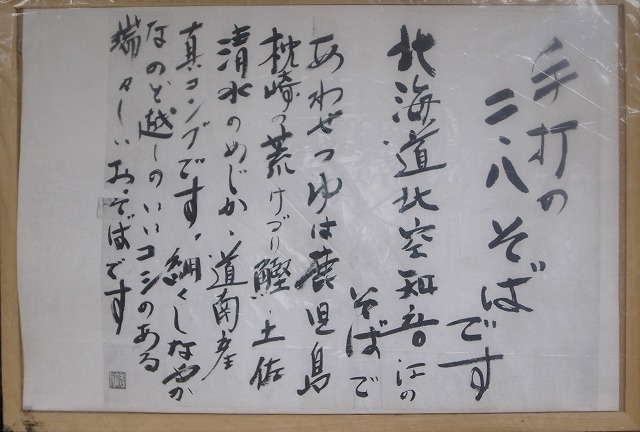 手打の
二八そば
です
北海道北空知音江の
そばで
あわせつゆは鹿児島
枕崎の荒けづり鰹、土佐
清水のめじか、道南産
真コンブです。細くしなやか
なのど越しのいいコシのある
瑞々しいおそばです